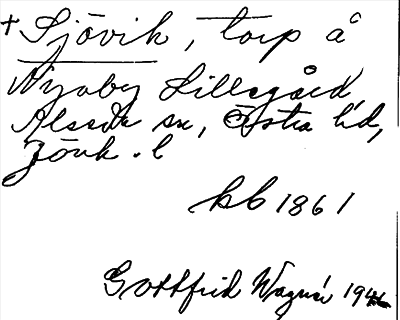 + Sjövik, torp å
Nyaby Lillegård
Alseda sn, Östra hd,
Jönk. l
kb 1861
Gottfrid Wagnér